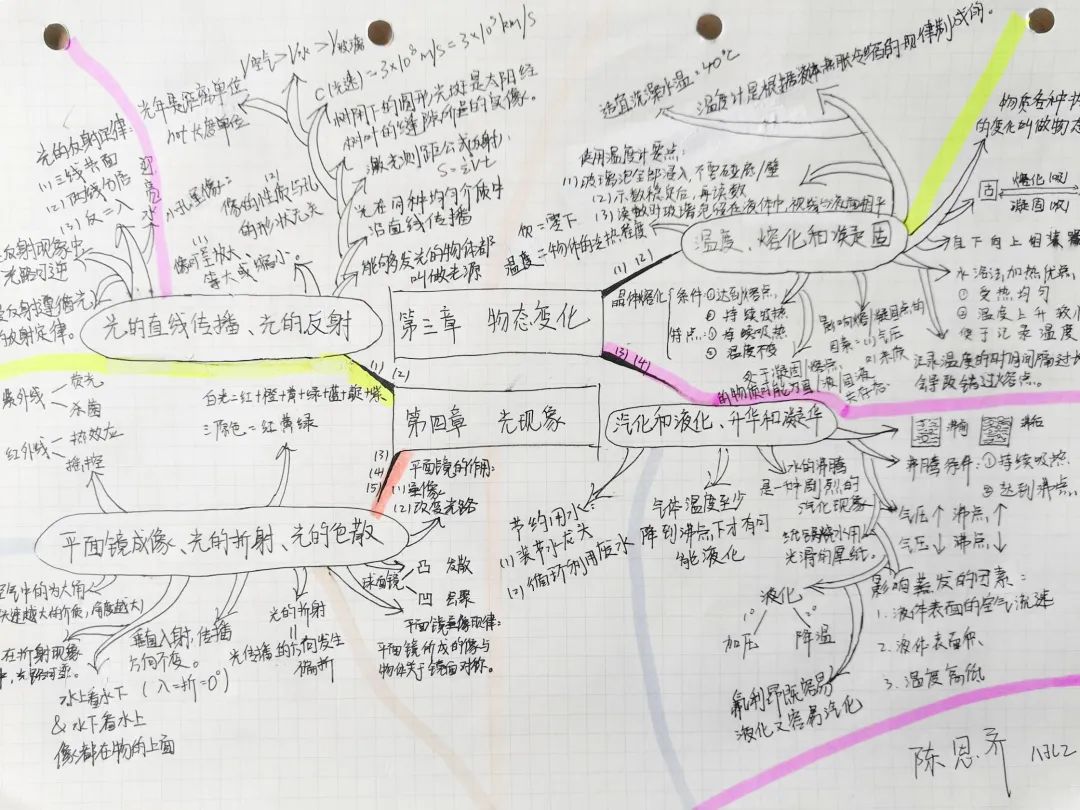 V空气>V水>V玻璃
C(光速)=3×10⁸m/s=3×10⁵km/s
光年是距离单位
树阴下的圆形光斑是太阳经
树叶的缝隙所造的
激光测距公式(反射):
S=½vt
光在同种均匀介质中
沿直线传播
能够发光的物体都
叫做光源
光的反射定律:
(1)三线共面
(2)两线分居
(3)反=入
小孔成像:
(1)
像可呈放大、
等大或缩小。
(2)
像的性质与孔
的形状无关
反射现象中
光路可逆
反射遵循光
的反射定律。
光的直线传播、光的反射
第三章 物态变化
(1)
(2)
第四章 光现象
(3)
(4)
(5)
紫外线
荧光
杀菌
红外线
热效应
摇控
白光=红+橙+黄+绿+蓝+靛+紫
三原色=红黄绿
平面镜的作用:
(1)成像
(2)改变光路
平面镜成像、光的折射、光的色散
球面镜
凸 发散
凹 会聚
平面镜成像规律:
平面镜所成的像与
物体关于镜面对称.
空气中的为大角
在折射现象
中,光路可逆.
垂直入射,传播
方向不变。
(入=折=0°)
光的折射
光传播的方向发生
偏折
水上看水下
&水下看水上
像都在物的上面
适宜洗澡水温=40℃
温度计是根据液体热胀冷缩的规律制成的。
使用温度计要点:
(1)玻璃泡全部浸入,不要碰底/壁
(2)示数稳定后,再读数
(3)读数时玻璃泡留在液体中,视线与液面相平
负=零下
温度=物体的冷热程度
温度、熔化和凝固
(1)(2)
物质各种状
的变化叫做物态
固
熔化(吸)
凝固
自下向上组装器
水浴法加热优点:
①受热均匀
②温度上升较
便于记录温度
记录温度的时间间隔过长
会导致错过熔点。
晶体熔化
条件:①达到熔点,
②持续吸热
特点:①持续吸热
②温度不变
影响熔/凝固点的
因素:(1)气压
(2)杂质
处于凝固/熔点
的物质可能为固、液、固液
共存态
(3)(4)
汽化和液化、升华和凝华
沸前
沸后
沸腾条件:①持续吸热
②达到沸点
气压↑ 沸点↑
气压↓ 沸点↓
水的沸腾
是一种剧烈的
汽化现象
气体温度至少
降到沸点下才有可
能液化
节约用水:
(1)装节水龙头
(2)循环利用废水
液化
加压
降温
影响蒸发的因素:
1.液体表面的空气流速
2.液体表面积
3.温度高低
氟利昂既容易
液化又容易汽化
陈思齐